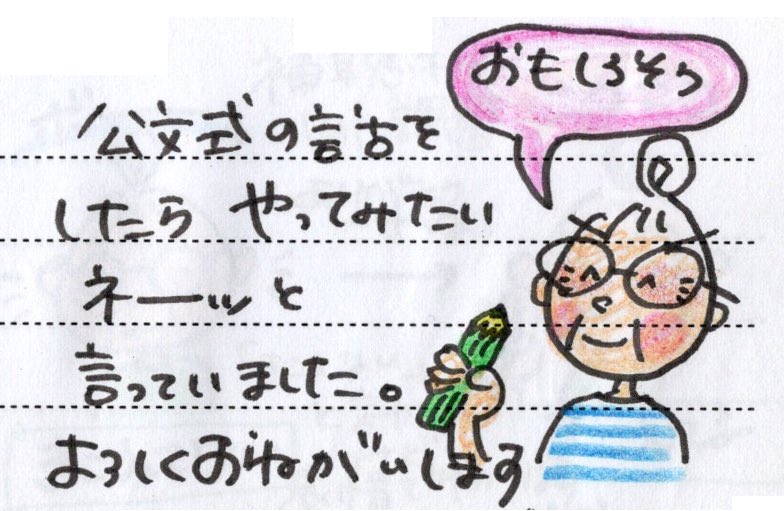 おもしろそう
公文式の話を
したら やってみたい
ネーッと
言っていました。
よろしくおねがいします